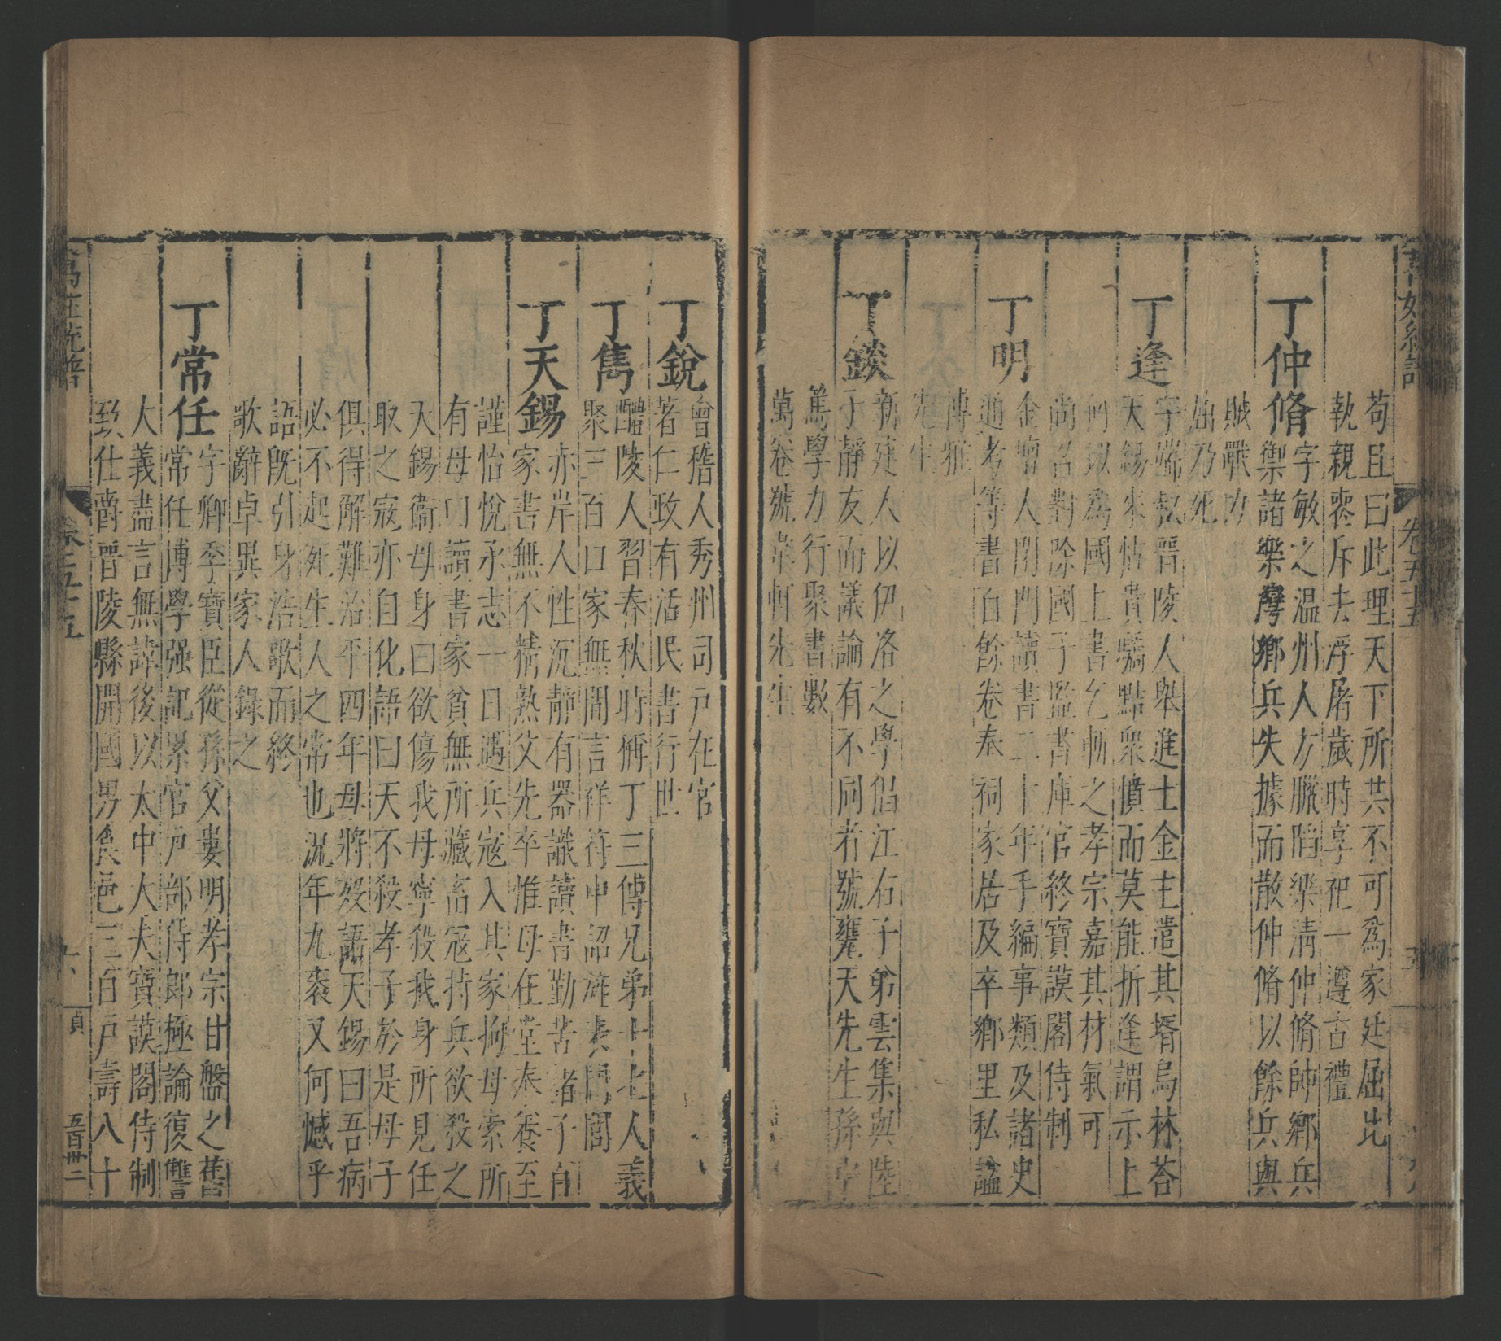 萬姓統譜
卷五十五
苟且曰此理天下所共不可為家廷屈比
執親喪斥去浮屠歲時享祀一遵古禮
丁仲脩
字敏之温州人方臘陷樂清仲脩帥鄉兵
禦諸樂灣鄉兵失據而散仲脩以餘兵與
賊戰力
屈乃死
丁逢
字端叔晋陵人舉進士金主遣其壻烏林荅
天錫來怙貴驕黠衆憤而莫能折逢謂示上
為國上書乞斬之孝宗嘉其材氣可
尚召對除國子監書庫官終寶謨閣侍制
丁明
金壇人閉門讀書二十年手編事類及諸史
通考等書百餘卷奉祠家居及卒鄉里私謚
博雅
先生
丁錟
新建人以伊洛之學倡江右子弟雲集與陸
子靜友而議論有不同者號甕天先生孫
篤學力行聚書數
萬卷號韋軒先生
丁銳
會稽人秀州司户在官
著仁政有活民書行世
丁雋
醴陵人習春秋時稱丁三傳兄弟十七人義
聚三百口家無間言祥符中詔旌表門閭
丁天錫
亦岸人性沉静有器識讀書勤苦諸子百
家書無不精熟父先卒惟母在堂奉養至
謹怡悅承志一日遇兵寇入其家拘母索所
有母曰讀書家貧無所藏畜寇持兵欲殺之
天錫衛母身曰欲傷我母寧殺我身所見任
取之寇亦自化語曰天不殺孝子於是母子
俱得解難治平四年母將殁語天錫曰吾病
必不起死生人之常也況年九袠又何憾乎
語既引身浩歌而終
歌辭卓異家人錄之
丁常任
字卿季寶臣從孫父婁明孝宗甘盤之舊
常任博學强記累官户部侍郎極論復讐
大義盡言無諱後以太中大夫寶謨閣侍制
致仕爵晋陵縣開國男食邑三百户壽八十
萬姓統譜
卷五十五
六
貞
吾丗二